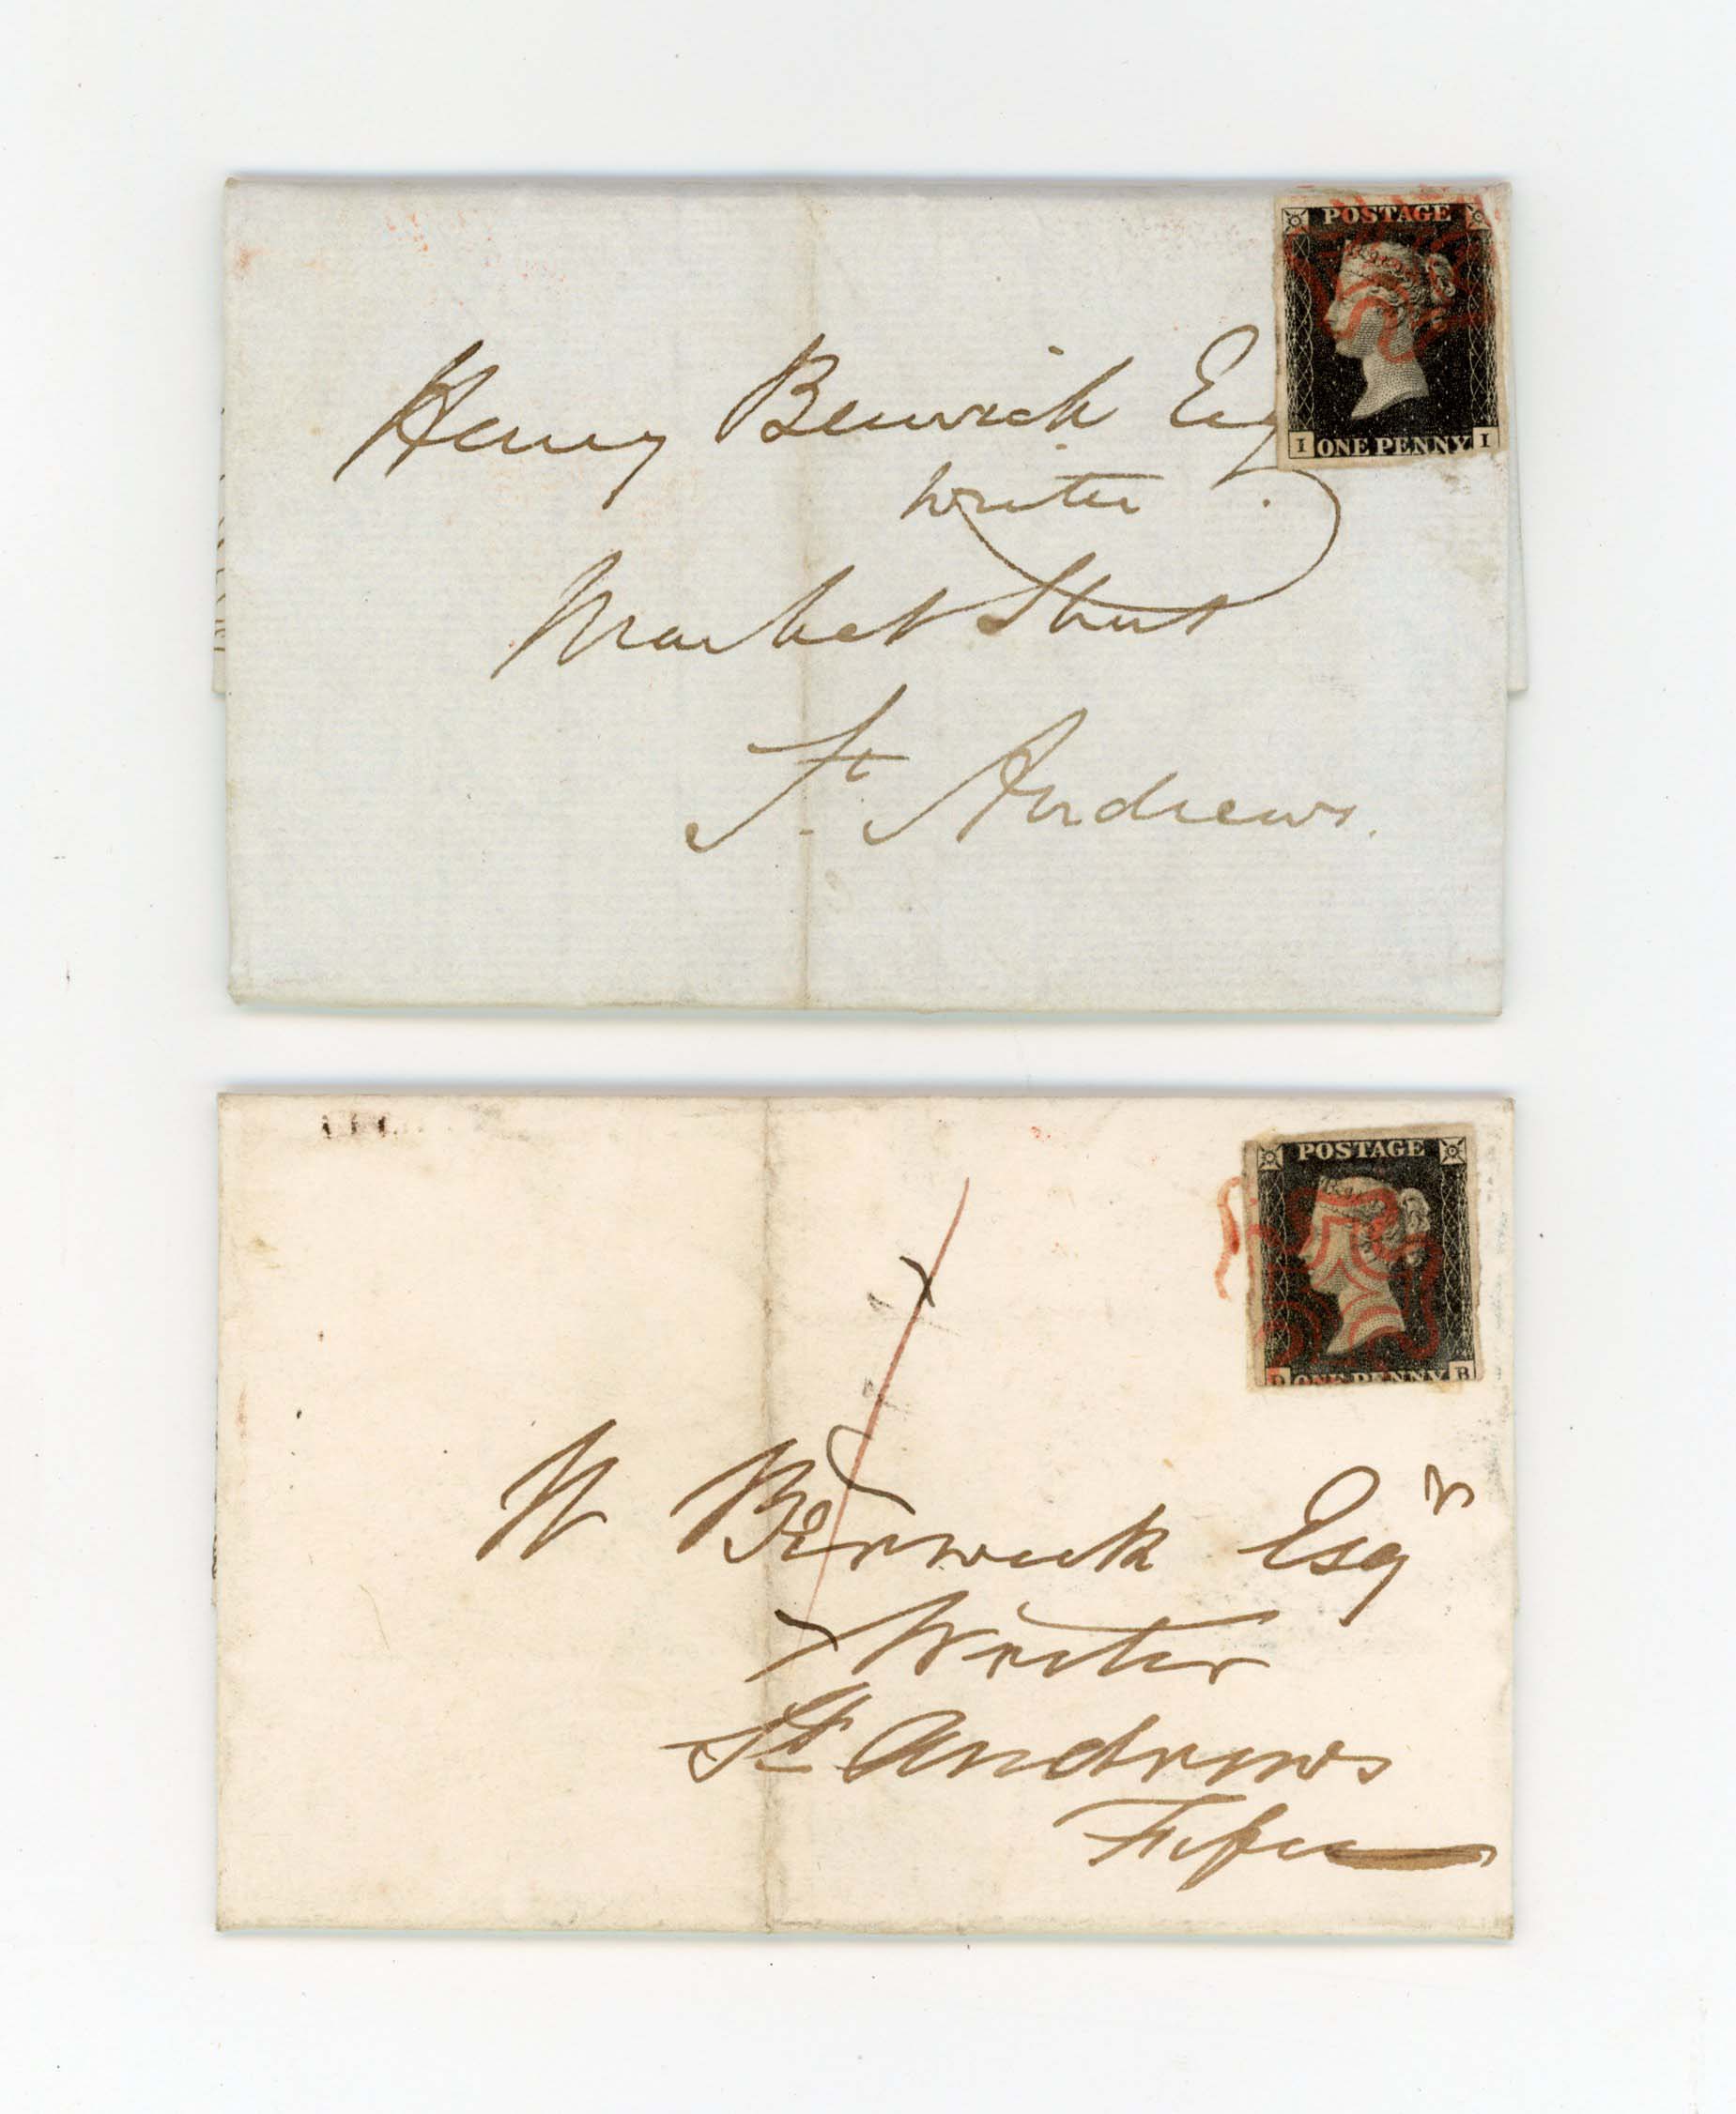 POSTAGE
Henry Berwick Esq
Writer
I ONE PENNY I
Market Street
St. Andrews.
POSTAGE
D ONE PENNY B
H Berwick Esqr
Writer
St Andrews
Fife